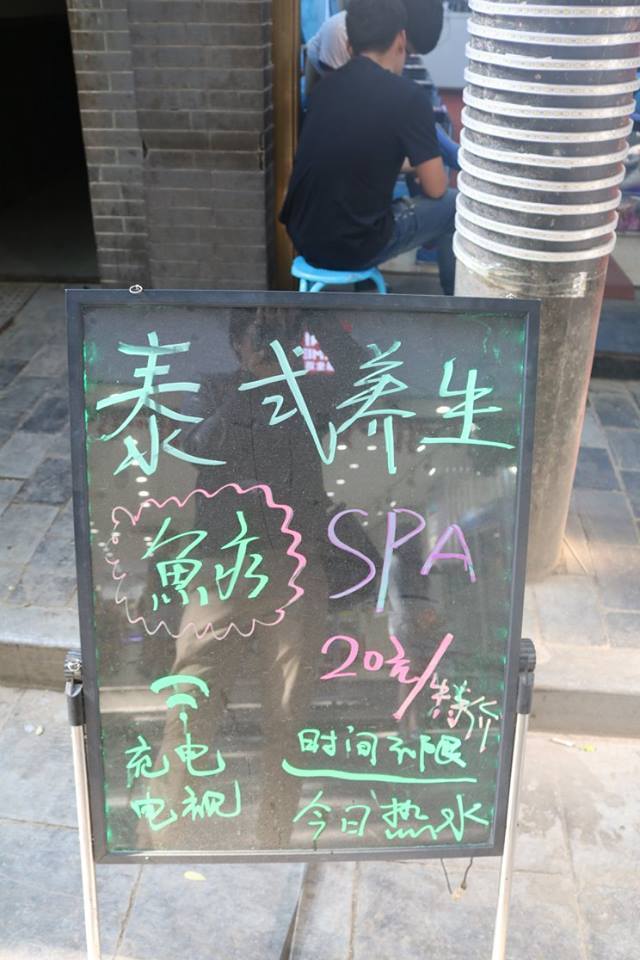 泰式养生
魚疗 SPA
20元/特价
充电 时间不限
电视 今日热水